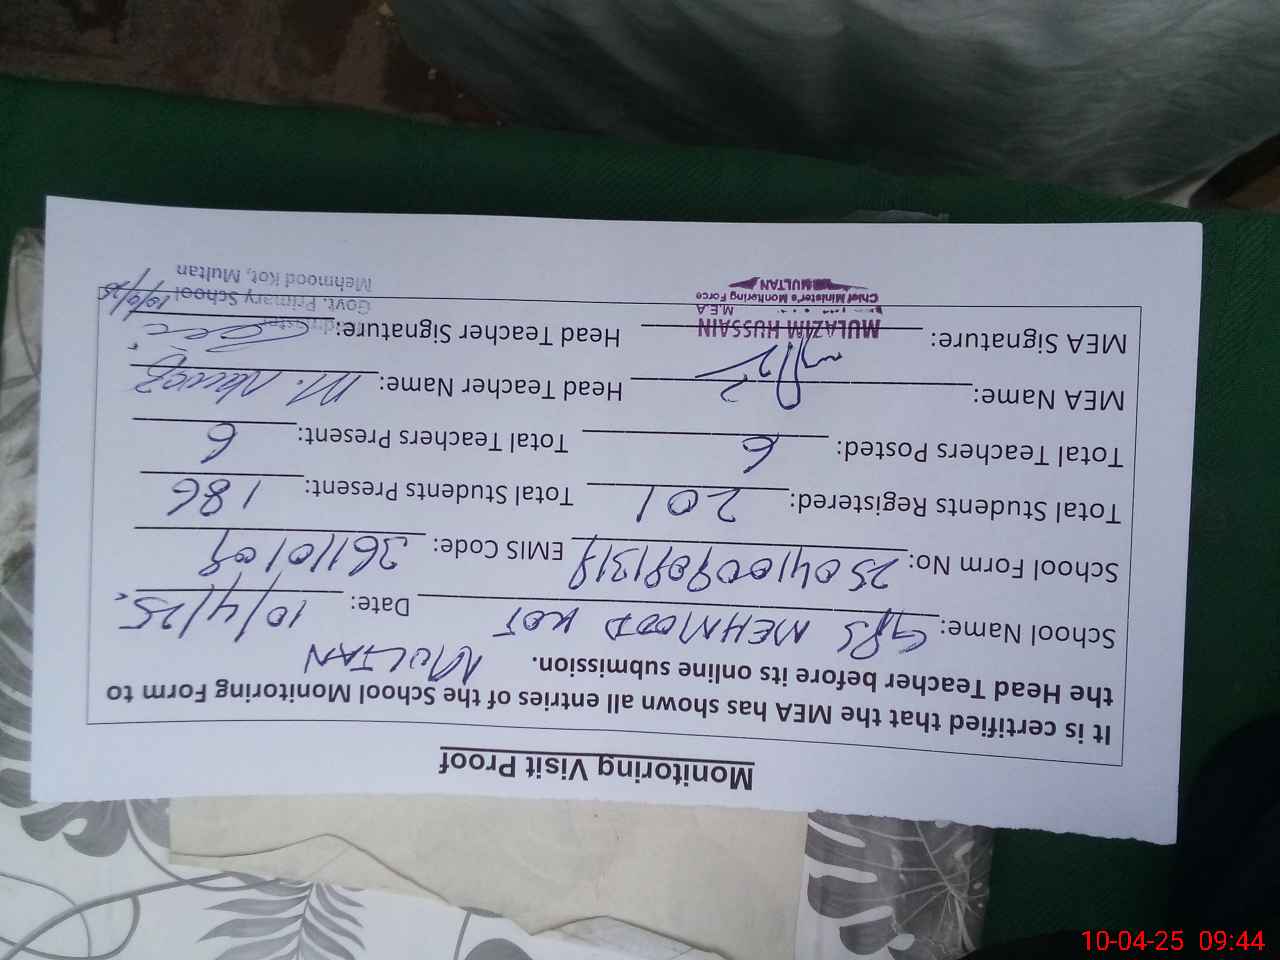 Monitoring Visit Proof
It is certified that the MEA has shown all entries of the School Monitoring Form to
the Head Teacher before its online submission. MULTAN
School Name: GPS MEHMOOD KOT Date: 10/4/25
School Form No: EMIS Code: 36110109
Total Students Registered: 201 Total Students Present: 186
Total Teachers Posted: 6 Total Teachers Present: 6
MEA Name: Head Teacher Name: M.
MEA Signature: Head Teacher Signature:
MULAZIM HUSSAIN
M.E.A
Chief Minister's Monitoring Force
MULTAN
Govt. Primary School
Mehmood Kot, Multan
10-04-25 09:44